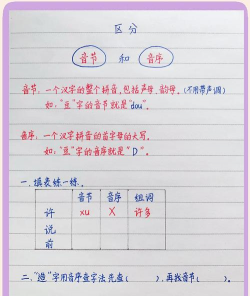 区分
音节 和 音序
音节:一个汉字的整个拼音,包括声母、韵母。(不用带声调)
如:"豆"字的音节就是"dou"。
音序:一个汉字拼音的首字母的大写。
如:"豆"字的音序就是"D"。
一、填表练一练。
音节 音序 组词
许 xu X 许多
说
前
二、"造"字用音序查字法先查( ),再找音节( )。